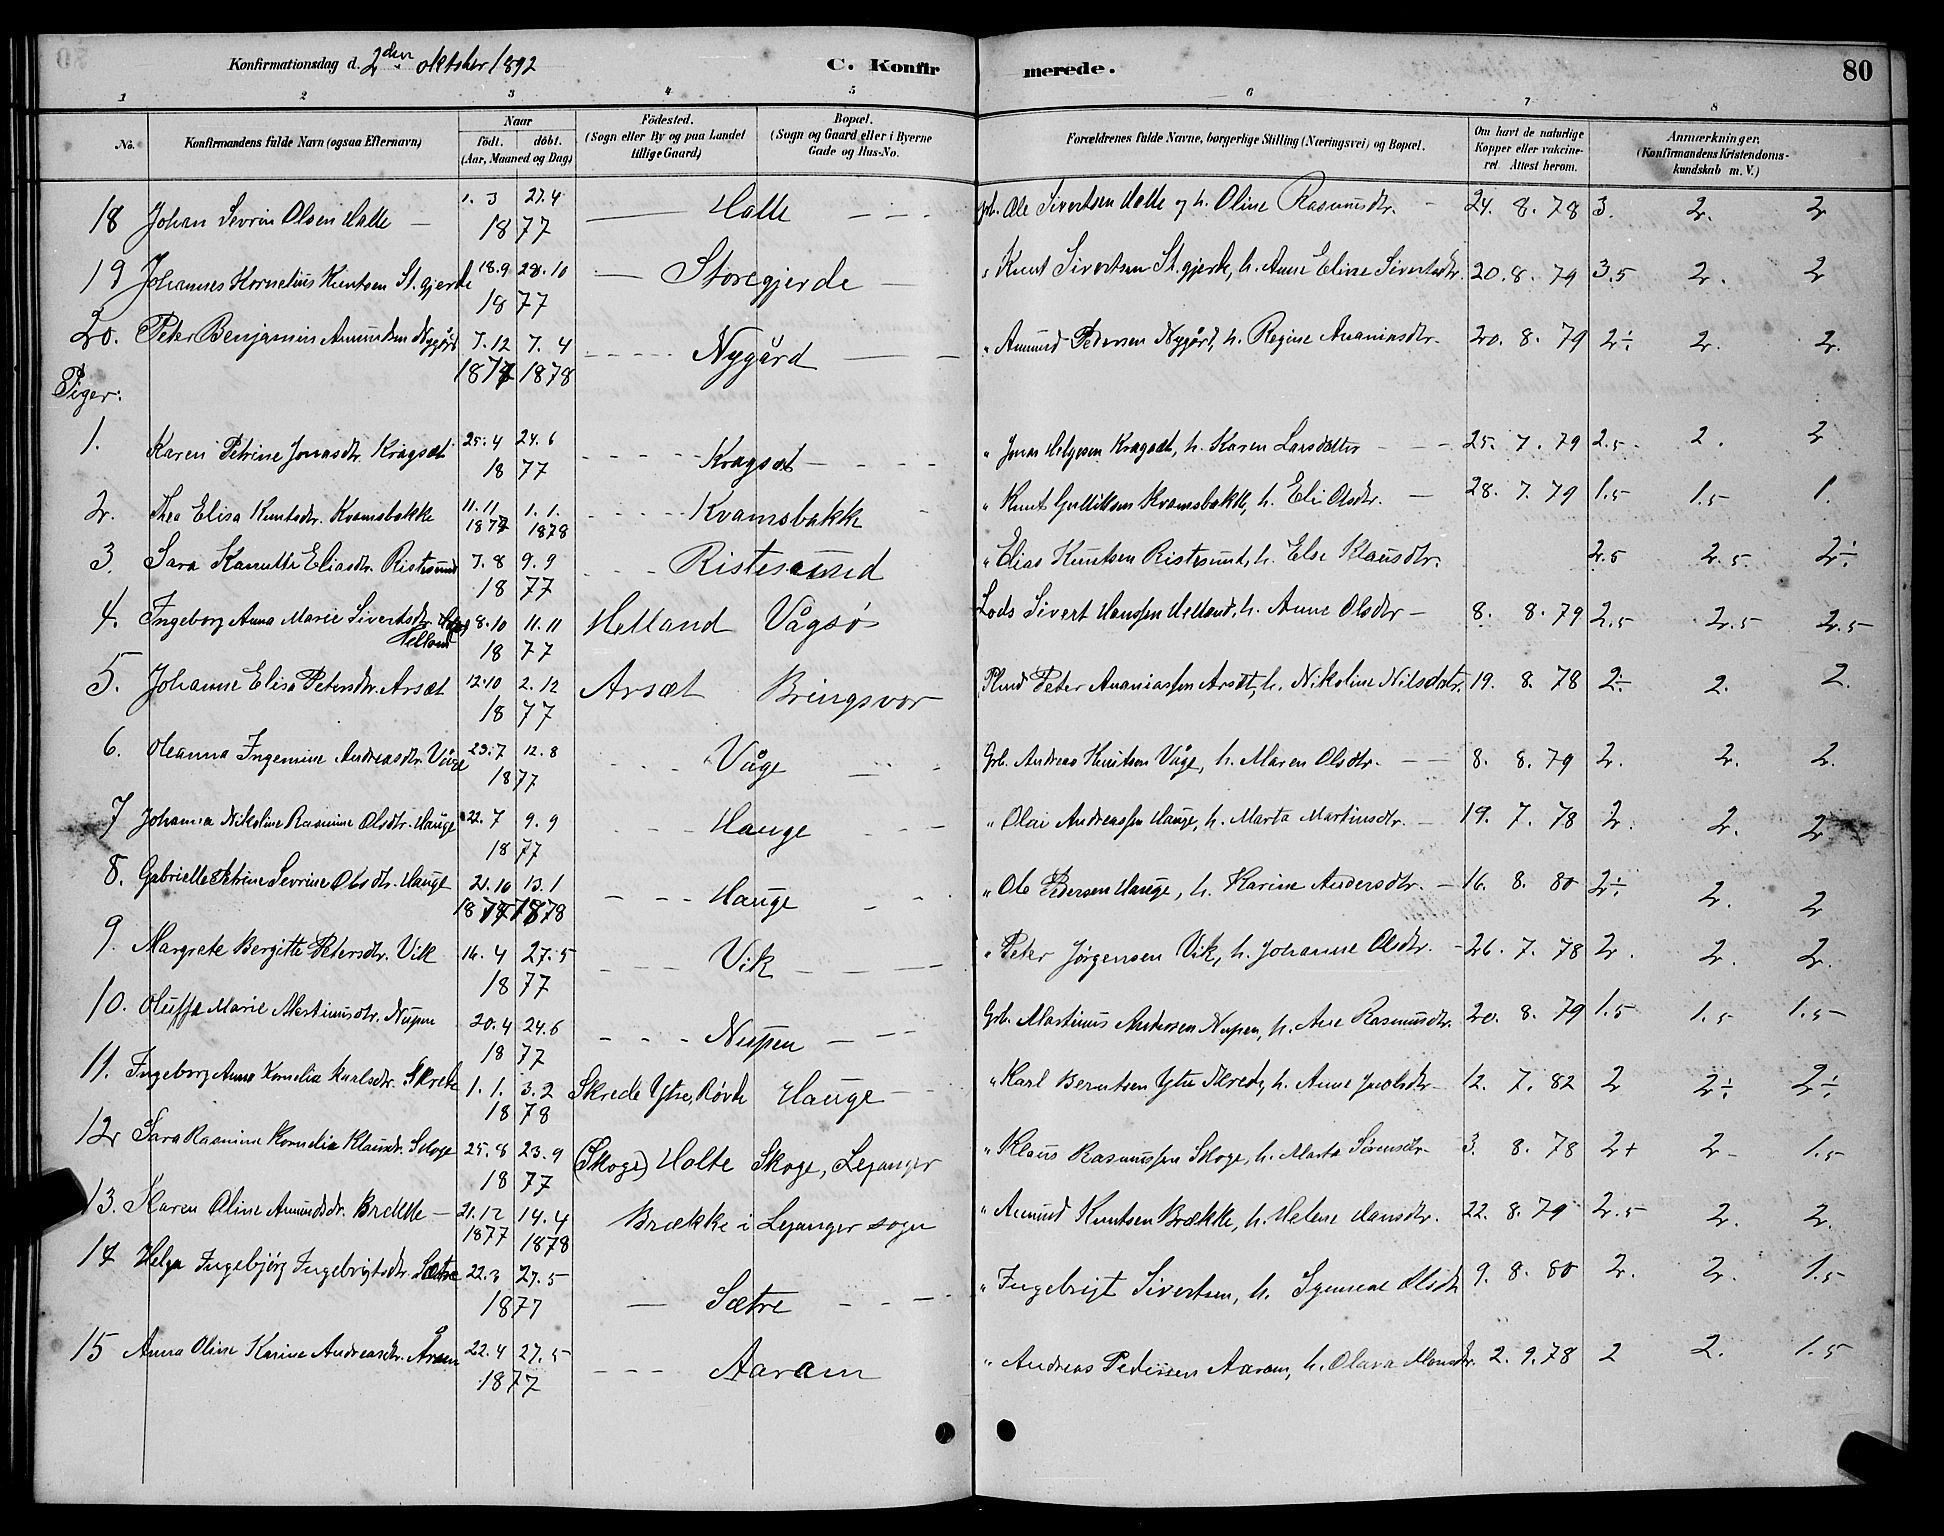 Konfirmationsdag d. 2den oktober 1892 C. Konfirmerede. 80
1 2 3 4 5 6 7 8
No. Konfirmandens fulde Navn (ogsaa Efternavn) Naar født. døbt. (Aar, Maaned og Dag) Fødested. (Sogn eller By og paa Landet tillige Gaard) Bopæl. (Sogn og Gaard eller i Byerne Gade og Hus-No. Forældrenes fulde Navne, borgerlige Stilling (Næringsvei) og Bopæl. Om havt de naturlige Kopper eller vakcineret. Attest herom. Anmærkninger. (Konfirmandens Kristendomskundskab m. V.)
18 Johan Sevrin Olsen Halle 1. 3 27.4 1877 Halle Gb. Ole Sivertsen Halle og h. Oline Rasmusdtr. 24. 8. 78 3. 2. 2
19 Johannes Kornelius Knutsen St.gjerde 18.9 28.10 1877 Storegjerde " Knut Sivertsen St.gjerde, h. Anne Eline Sivertsdtr. 20. 8. 79 3.5 2. 2
20. Peter Benjamin Amundsen Nygård 7.12 7. 4 1877 1878 Nygård " Amund Pedersen Nygård, h. Regine Ananiasdtr. 20. 8. 79 2÷ 2. 2.
Piger:
1. Karen Petrine Jonasdtr. Kragsæt 25.4 24.6 1877 Kragsæt " Jonas Helgesen Kragsæt, h. Karen Larsdatter 25. 7. 79 2.5 2. 2
2. Thea Elisa Knutsdtr. Kvamsbakke 11.11 1.1. 1877 1878 Kvamsbakke " Knut Gullikson Kvamsbakke, h. Eli Olsdtr. 28. 7. 79 1.5 1.5 1.
3. Sara Kanutte Eliasdtr. Ristesund 7.8 9.9 1877 Ristesund " Elias Knutsen Ristesund, h. Else Klausdtr. 2.5 2.5 2÷
4. Ingeborg Anna Marie Sivertsdtr. Helland 8.10 11.11 1877 Helland Vågsø Lods Sivert Hansen Helland, h. Anne Olsdtr 8. 8. 79 2.5 2.5 2.5
5. Johanne Elisa Petersdtr. Arsæt 12.10 2.12 1877 Arsæt Bringsvor Peter Ananiassen Arsæt, h. Nikoline Nilsdatr. 19. 8. 78 2÷ 2. 2.
6. Oleanna Ingemine Andreasdtr. Våge 23.7 12.8 1877 Våge Gb. Andreas Knutsen Våge, h. Maren Olsdtr. 8. 8. 79 2. 2. 2.
7 Johanna Nikoline Rasmine Olsdtr. Hauge 22.7 9.9 1877 Hauge " Olai Andreassen Hauge, h. Marta Martinsdtr. 19. 7. 78 2. 2. 2
8. Gabrielle Petrine Sevrine Olsdtr. Hauge 21.10 13.1 1877 1878 Hauge " Ole Pedersen Hauge, h. Karine Andersdtr. 16. 8. 80 2÷ 2. 2
9. Margrete Bergitte Petersdtr. Vik 16.4 27.5 1877 Vik " Peter Jørgensen Vik, h. Johanne Olsdtr. 26. 7. 78 2. 2. 2.
10. Oluffa Marie Martinusdtr. Nupen 20.4 24.6 1877 Nupen Gb. Martinus Andersen Nupen, h. Ane Rasmusdtr. 20. 8. 79 1.5 1.5 1.5
11. Ingeborg Anna Kornelia Karlsdtr. Skrede 1.1. 3.2 1878 Skrede Ytre, Røvde Hauge " Karl Berntsen Ytre Skrede, h. Anne Jacobsdtr 12. 7. 82 2 2÷ 2÷
12 Sara Rasmine Kornelia Klausdtr. Skoge 25.8 23.9 1877 (Skoge) Holte Skoge, Lejanger " Klaus Rasmussen Skoge, h. Marta Sørensdtr. 3. 8. 78 2+ 2 1.5
13. Karen Oline Amundsdtr. Brække 21.12 14.4 1877 1878 Brække i Lejanger sogn " Amund Knutsen Brække, h. Helene Hansdtr. 22. 8. 79 2.5 2. 2.
14 Helga Ingebjørg Ingebrigtsdtr. Sætre 22.3 27.5 1877 Sætre " Ingebrigt Sivertsen, h. Olsdtr 9. 8. 80 2. 2. 1.5
15 Anna Oline Karine Andreasdtr. Åram 22.4 27.5 1877 Aaram " Andreas Pedersen Aaram, h. Olava 2. 9. 78 2 2. 1.5